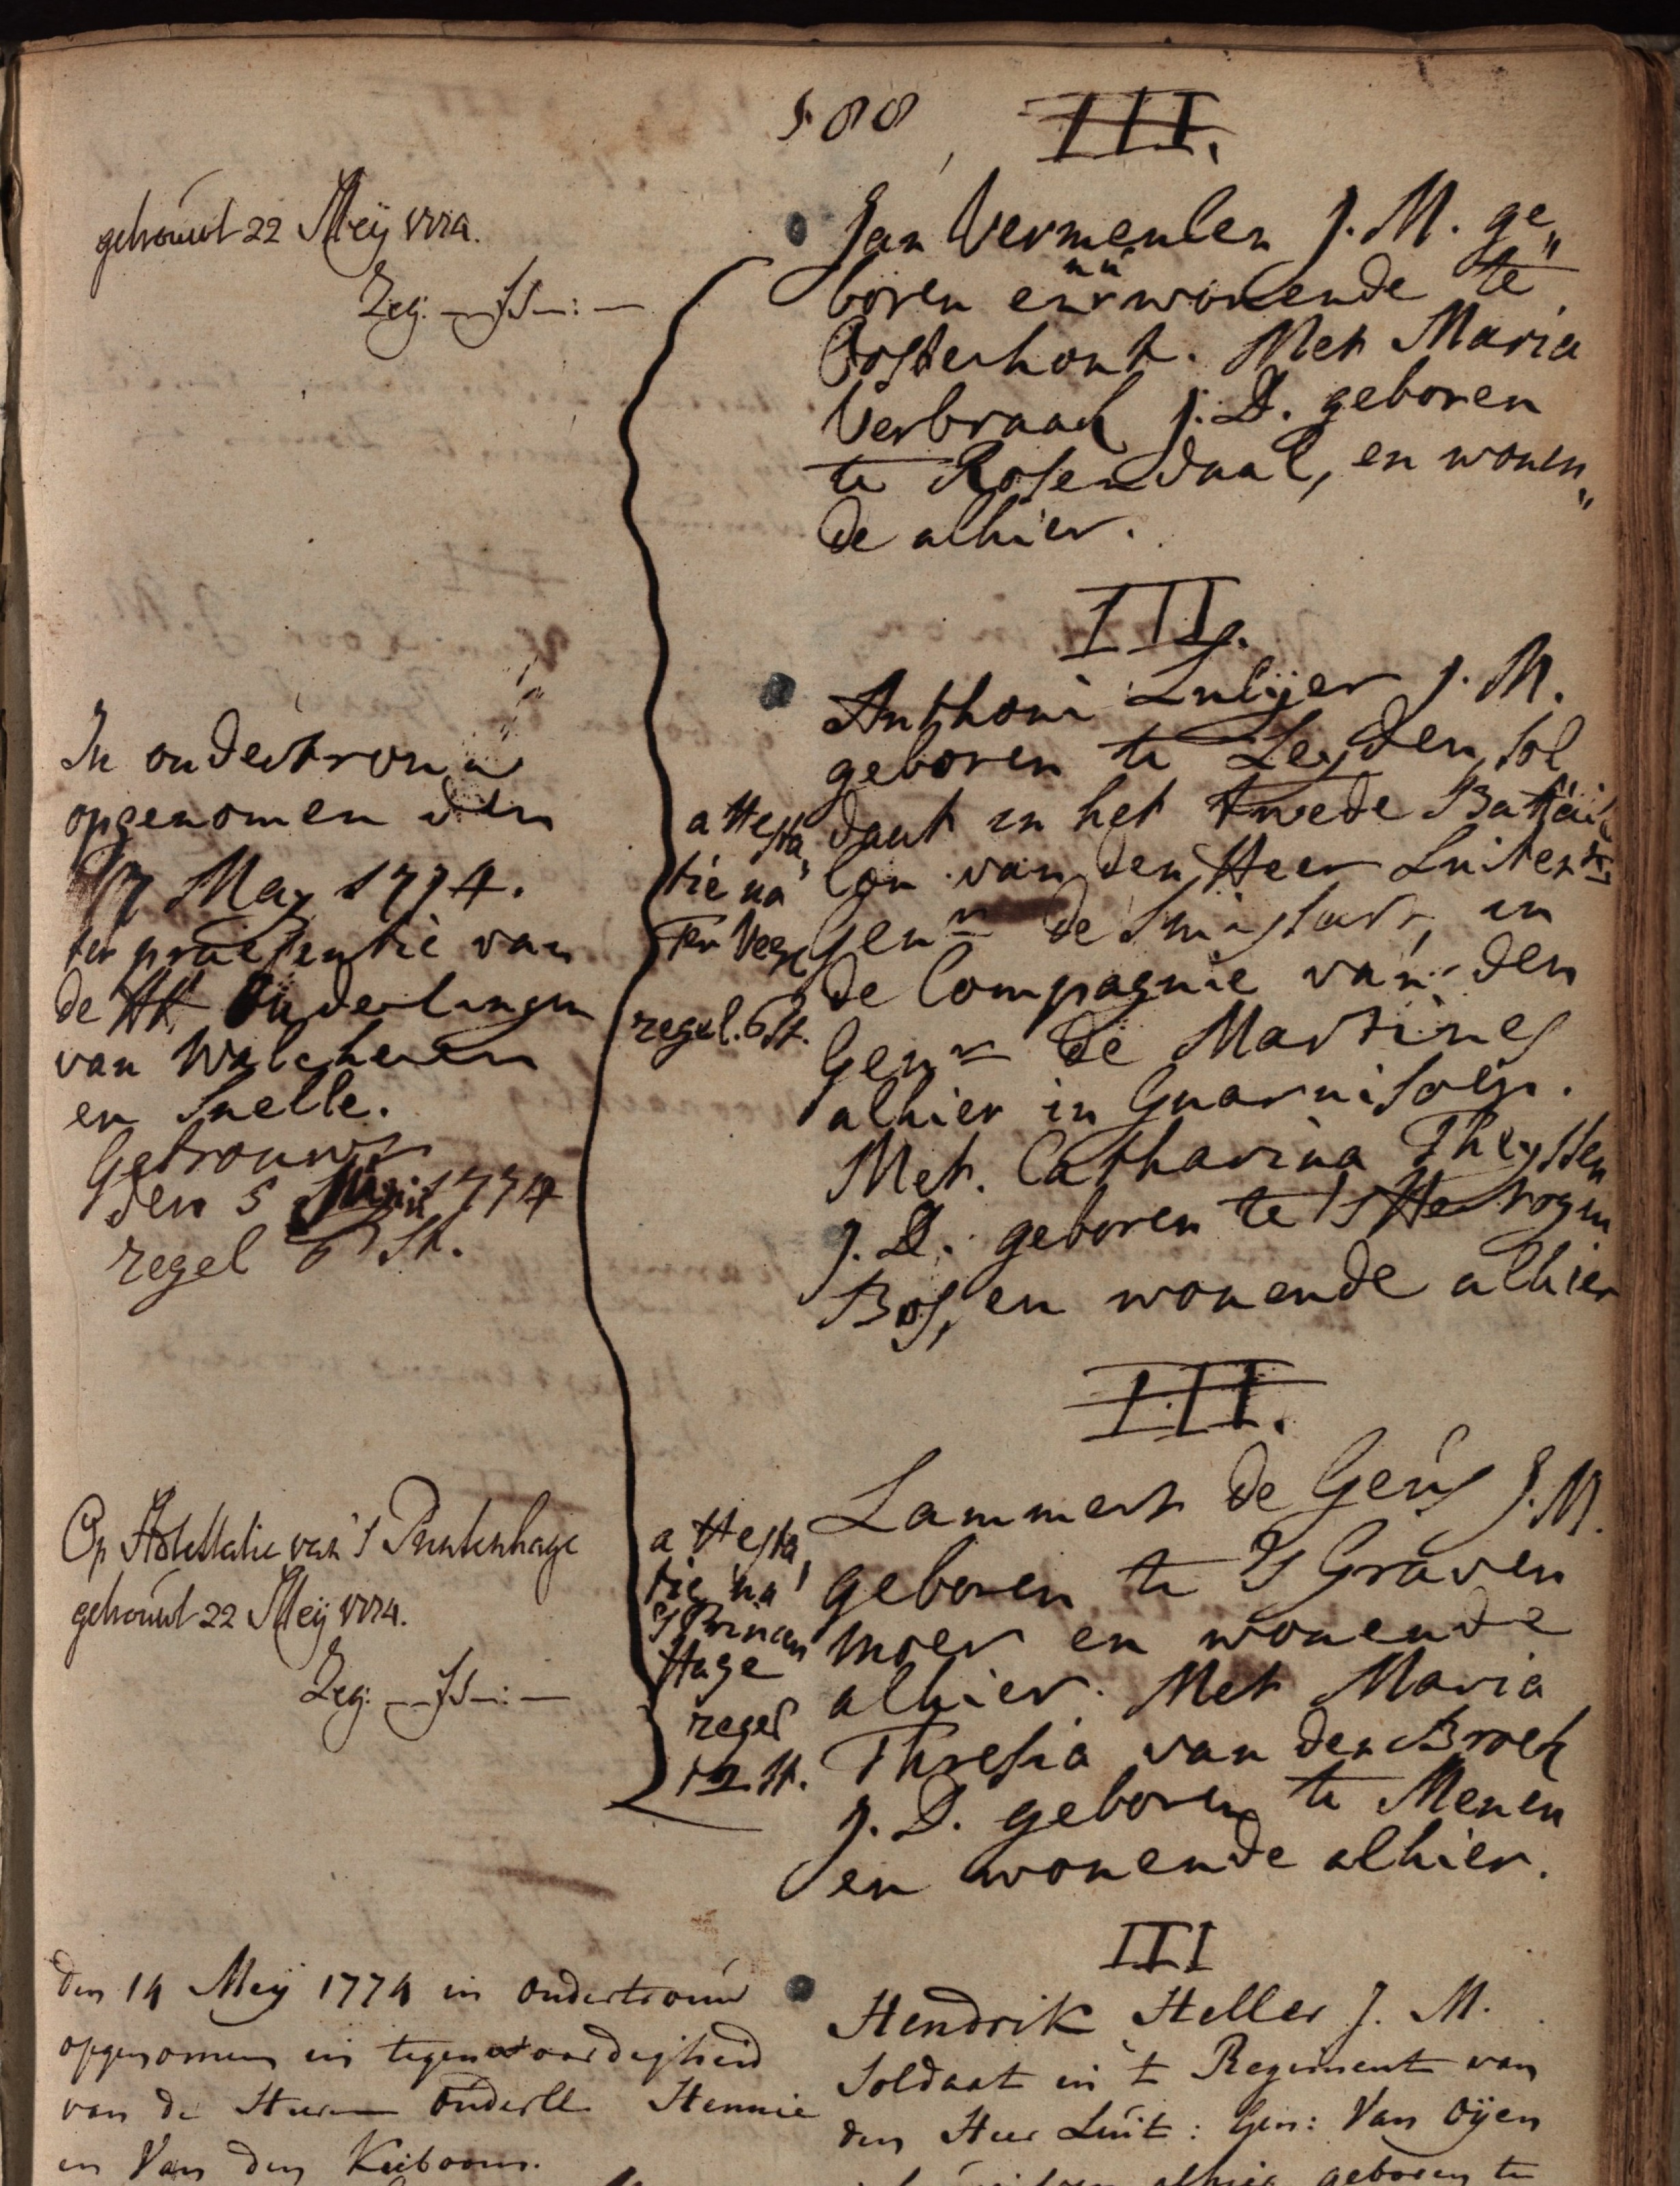 588 III.
getrouwt 22 Meÿ 1774.
Zeg: — 
Jan Vermeulen J. M. ge„
boren en nu wonende te
Oosterhout. Met Maria
Verbraak J. D. geboren
te Rosendaal, en wonen„
de alhier.
III.
In ondertrouw
opgenomen den
17 May 1774.
ter praesentie van
de HH Ouderlingen
van Walcheren
en Snelle.
Getrouwt
den 5 Junii 1774
zegel 6 St.
attesta„
tie na
Ter Veer
zegel. 6 St.
Anthoni Lulijer J. M.
geboren te Leyden, Sol
daat in het twede Battail
lon van den Heer Luitent
Genr de Smissart, in
de Compagnie van den
Genr de Martines
alhier in Guarnisoen.
Met. Catharina Theyssen
J. D. geboren te 's Hertogen
Bos, en wonende alhier
III.
Op Attestatie van 's Prinsenhage
getrouwt 22 Meÿ 1774.
Zeg: — 
attesta„
tie na
's Prinsen
Hage
zegel
12 St.
Lammert de Geus J. M.
geboren te 's Graven
moer en wonende
alhier. Met Maria
Thresia van den Broek
J. D. geboren te Menen
en wonende alhier.
III
den 14 Meÿ 1774 in ondertrouw
opgenomen in tegenwoordigheid
van de Heeren Ouderll Hennie
en Van den Keiboom.
Hendrik Heller J. M.
Soldaat in 't Regiment van
den Heer Luit: Gen: Van Oÿen
alhier geboren te